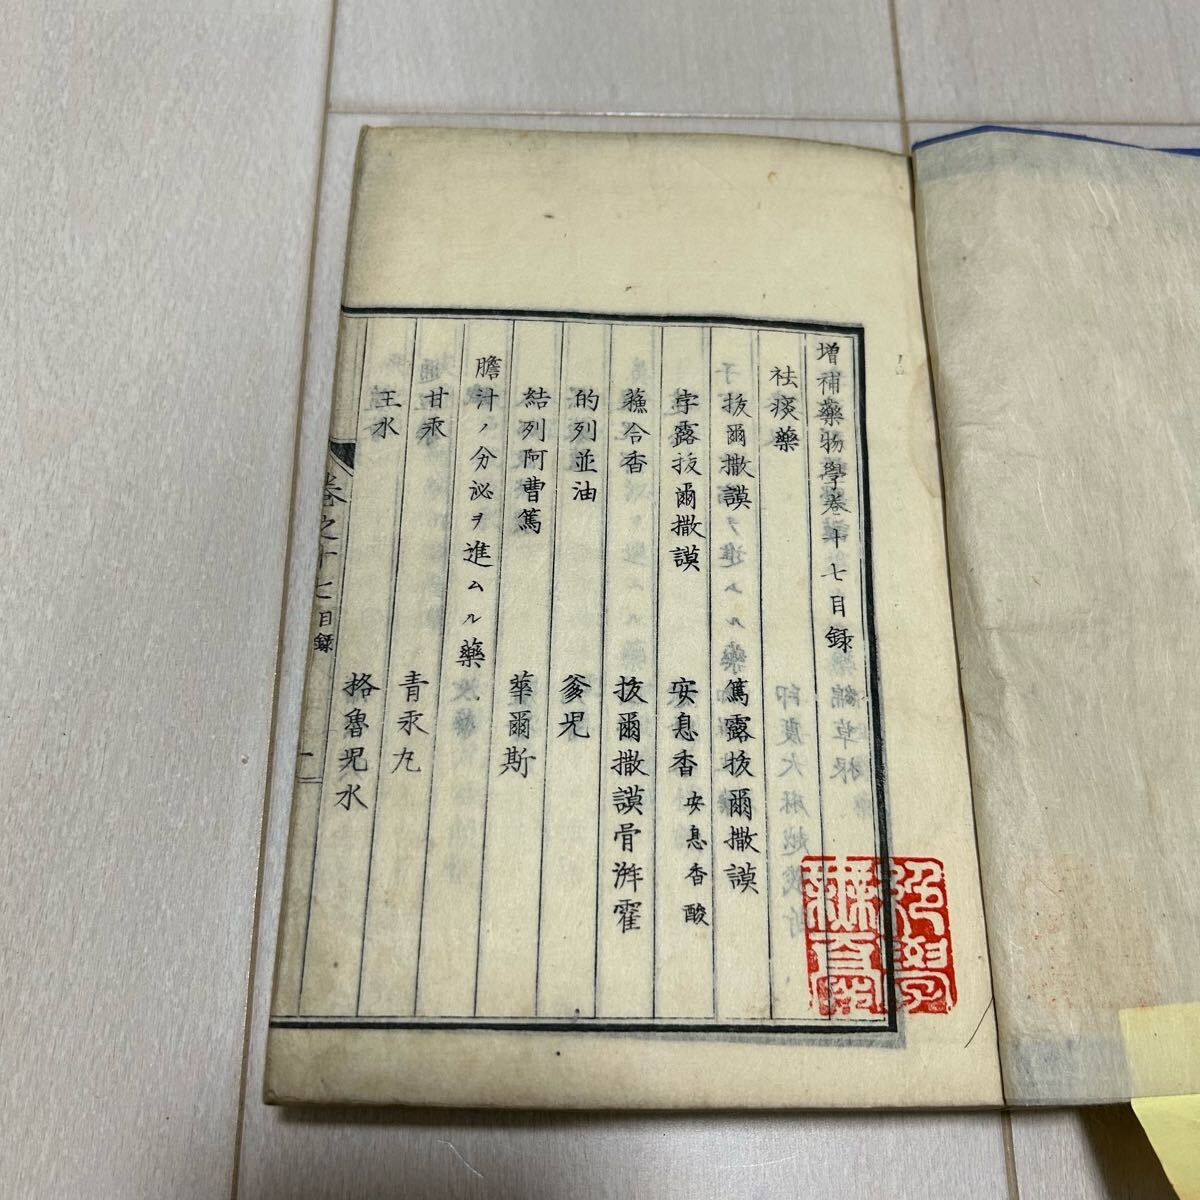 増補藥物學卷十七目録
祛痰藥
拔爾撒謨　篤露拔爾撒謨
孛露拔爾撒謨　安息香　安息香酸
蘓合香　拔爾撒謨骨湃霍
的列並油　爹児
結列阿曹篤　華爾斯
膽汁ノ分泌ヲ進ムル藥
甘汞　青汞丸
王水　格魯児水
卷之十七目録　一